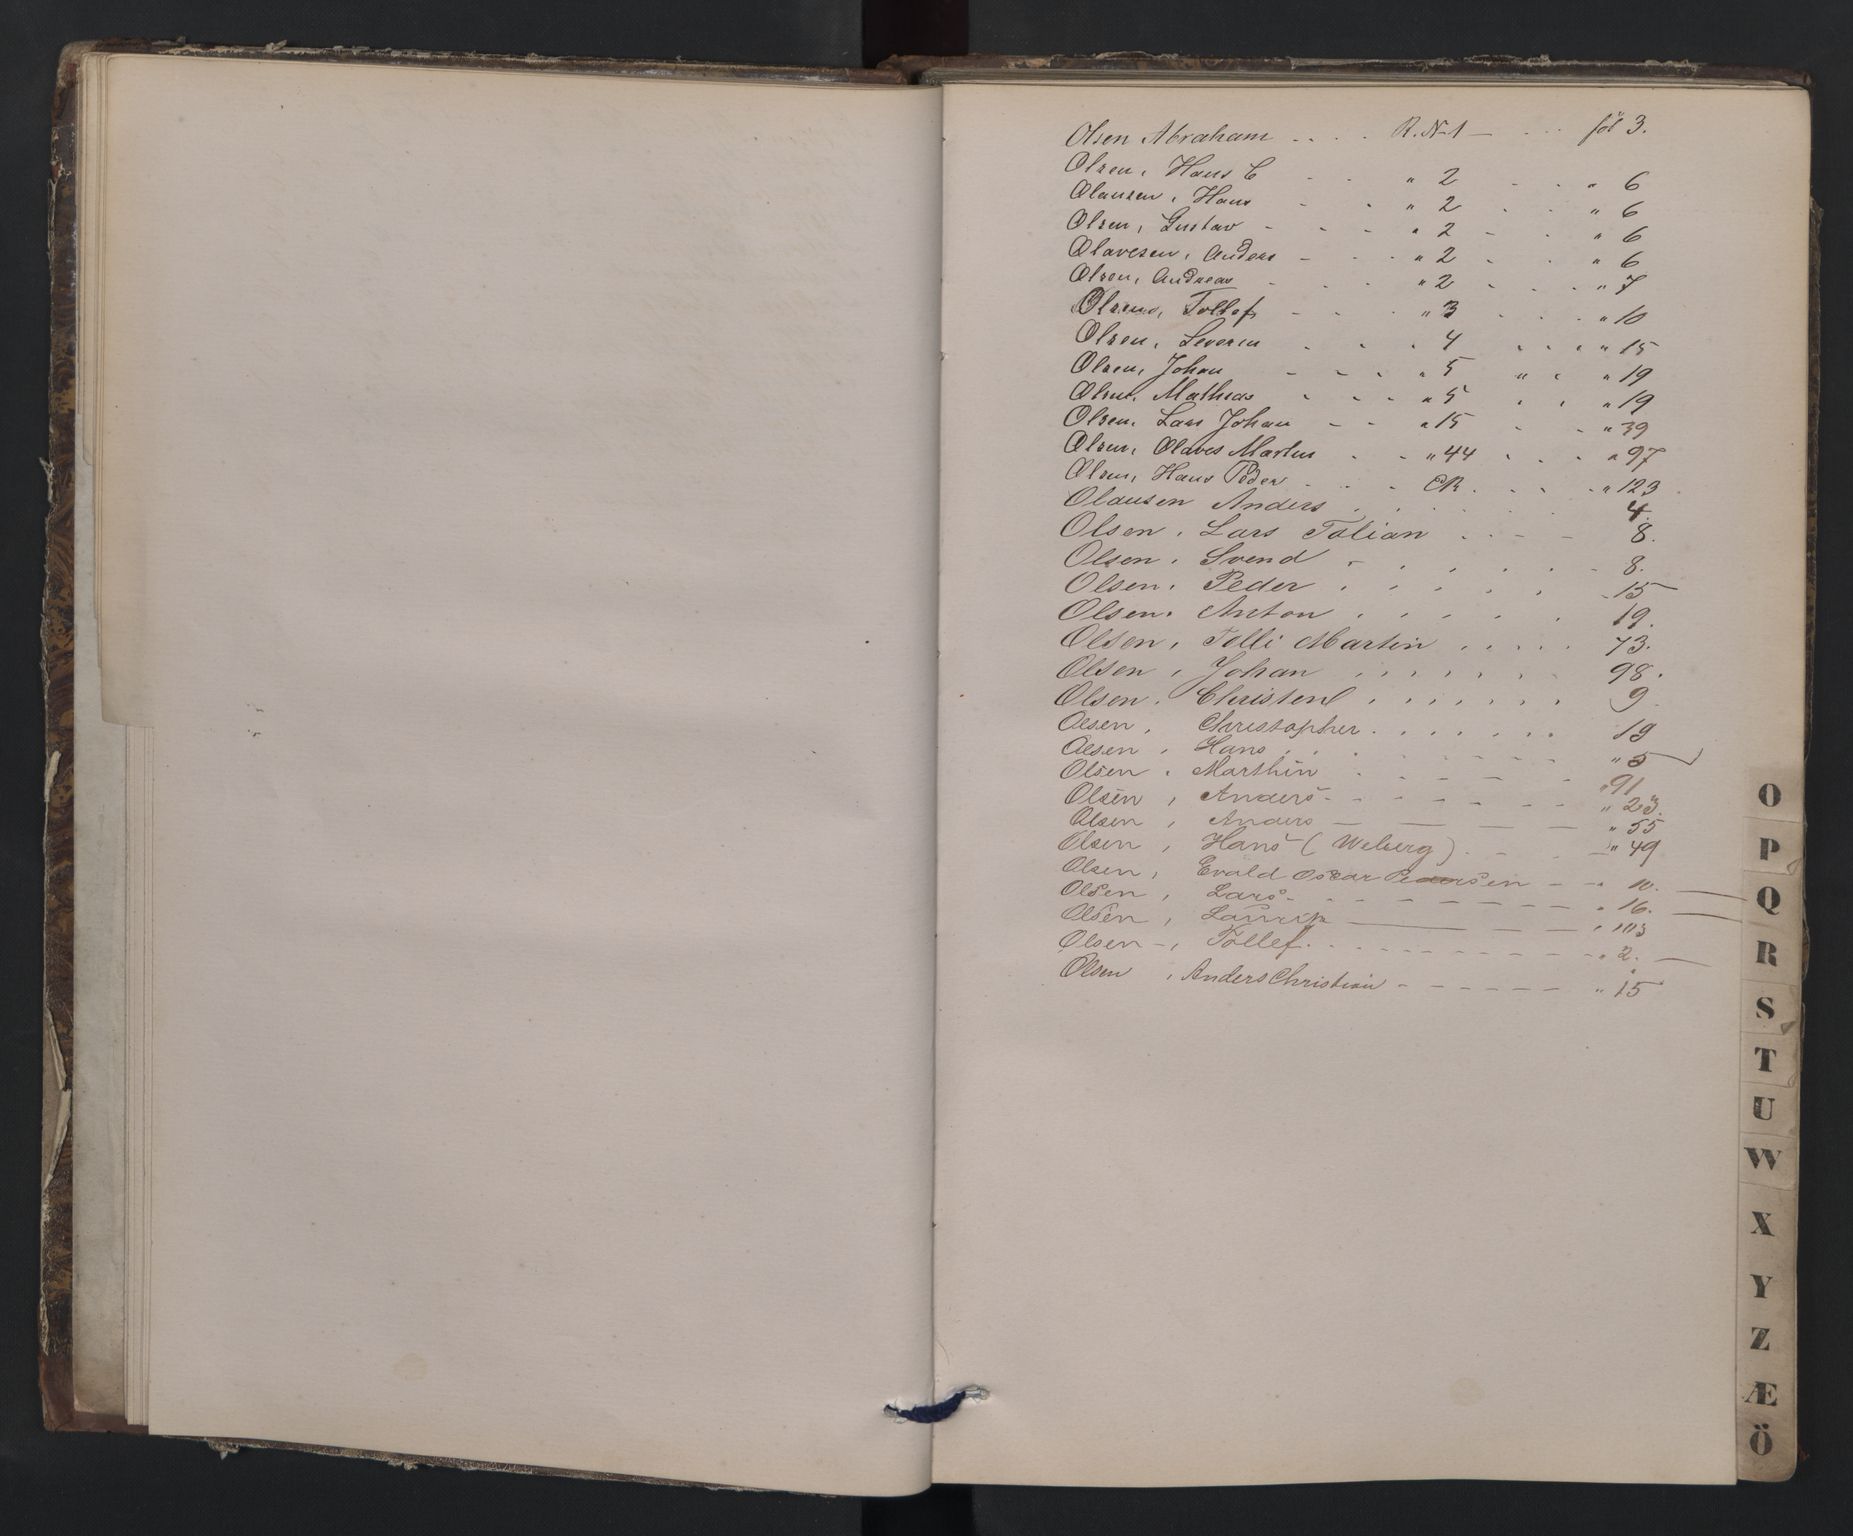 Olsen Abraham .. . . R. N 1 — ... fol 3.
Olsen, Hans C - - " 2 - - " 6
Olausen, Hans - - " 2 - - " 6
Olsen, Gustav - - - - " 2 - - " 6
Olavesen, Anders - - - " 2 - - " 6
Olsen, Andreas - - - " 2 - - - " 7
Olsen, Tollef - - - " 3 - - - " 10
Olsen, Severin - - - 4 - - - " 15
Olsen, Johan - - - " 5 " - " 19
Olsen, Mathias - - - " 5 - - " 19
Olsen, Lars Johan - - " 15 - - " 39
Olsen, Olaves Martin - - " 44 - - " 97
Olsen, Hans Peder - - - CR. - - - " 123
Olausen Anders . . . . . . 4.
Olsen, Lars Tolian . . - - 8.
Olsen, Svend - . . . . - 8.
Olsen, Peder . . . . . 15
Olsen, Anton . . . . . 19.
Olsen, Tolli Martin . . . . . 73.
Olsen, Johan . . . . . . . 98.
Olsen, Christen . . . . . . . 9
Olsen, Christopher . . . . . . . 19
Olsen, Hans . . . . . . " 5
Olsen, Marthin . - - - - - " 91
Olsen, Anders - - - - - - - " 23.
Olsen, Anders — — — — — " 55
Olsen, Hans (Weberg) . - . — " 49
Olsen, Evald Oscar Pedersen — - " 10. —
Olsen, Lars - - - - - - - - " 16. —
Olsen, — — — "
Olsen -, Tollef . . - - - - - - - " 2. —
Olsen, Anders Christian - - - - - - " 15
O
P
Q
R
S
T
U
W
X
Y
Z
Æ
Ö